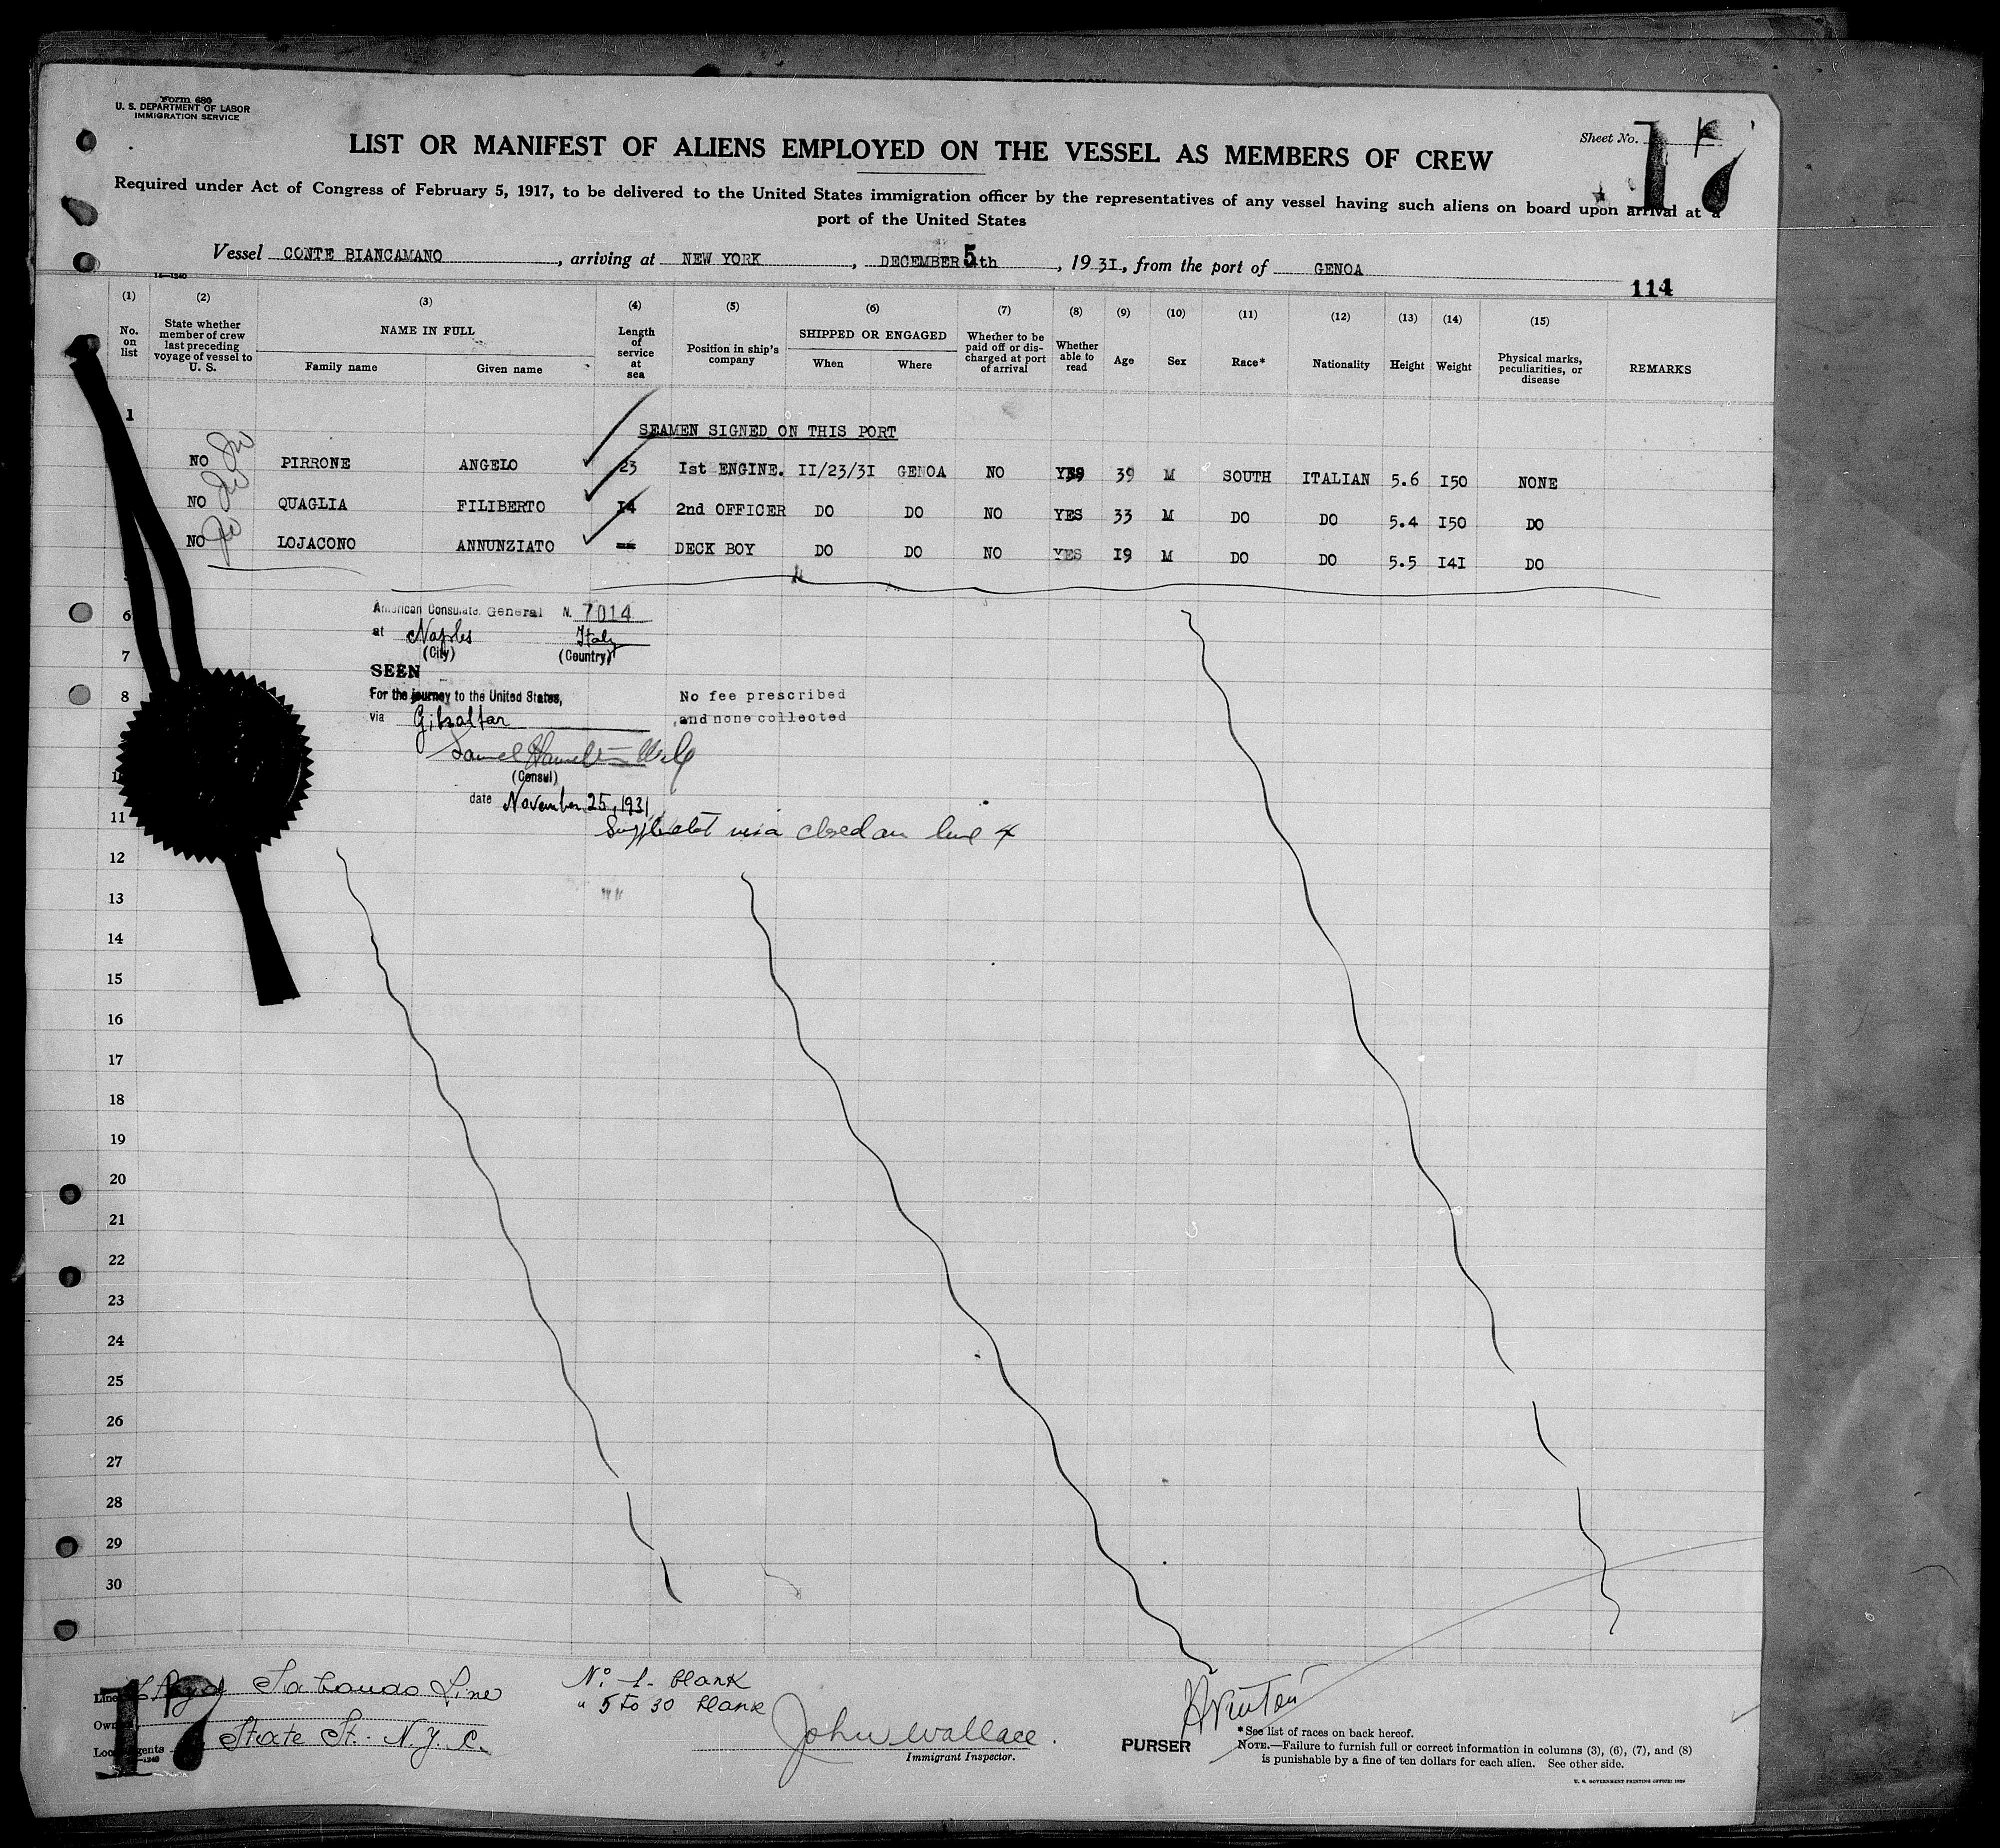 Form 680
U. S. DEPARTMENT OF LABOR
IMMIGRATION SERVICE
Sheet No.
17
LIST OR MANIFEST OF ALIENS EMPLOYED ON THE VESSEL AS MEMBERS OF CREW
Required under Act of Congress of February 5, 1917, to be delivered to the United States immigration officer by the representatives of any vessel having such aliens on board upon arrival at a
port of the United States
Vessel CONTE BIANCAMANO, arriving at NEW YORK, DECEMBER 5th, 1931, from the port of GENOA
14—1240
114
(1) (2) (3) (4) (5) (6) (7) (8) (9) (10) (11) (12) (13) (14) (15)
No. on list
State whether member of crew last preceding voyage of vessel to U. S.
NAME IN FULL
Family name
Given name
Length of service at sea
Position in ship's company
SHIPPED OR ENGAGED
When
Where
Whether to be paid off or discharged at port of arrival
Whether able to read
Age
Sex
Race*
Nationality
Height
Weight
Physical marks, peculiarities, or disease
REMARKS
1
SEAMEN SIGNED ON THIS PORT
NO PIRRONE ANGELO 23 Ist ENGINE. II/23/3I GENOA NO YES 39 M SOUTH ITALIAN 5.6 I50 NONE
NO QUAGLIA FILIBERTO I4 2nd OFFICER DO DO NO YES 33 M DO DO 5.4 I50 DO
NO LOJACONO ANNUNZIATO -- DECK BOY DO DO NO YES I9 M DO DO 5.5 I4I DO
American Consulate General N. 7014
at Naples Italy
(City) (Country)
SEEN
For the journey to the United States,
via Gibraltar
No fee prescribed
and none collected
(Consul)
date November 25, 1931
visa closed on line 4
6
7
8
11
12
13
14
15
16
17
18
19
20
21
22
23
24
25
26
27
28
29
30
Line Lloyd Sabaudo Line
Owners
Local Agents State St. N.Y.C.
17
Nº 1- blank
" 5 to 30 blank
John Wallace.
Immigrant Inspector.
PURSER
*See list of races on back hereof.
NOTE.—Failure to furnish full or correct information in columns (3), (6), (7), and (8)
is punishable by a fine of ten dollars for each alien. See other side.
U. S. GOVERNMENT PRINTING OFFICE: 1929